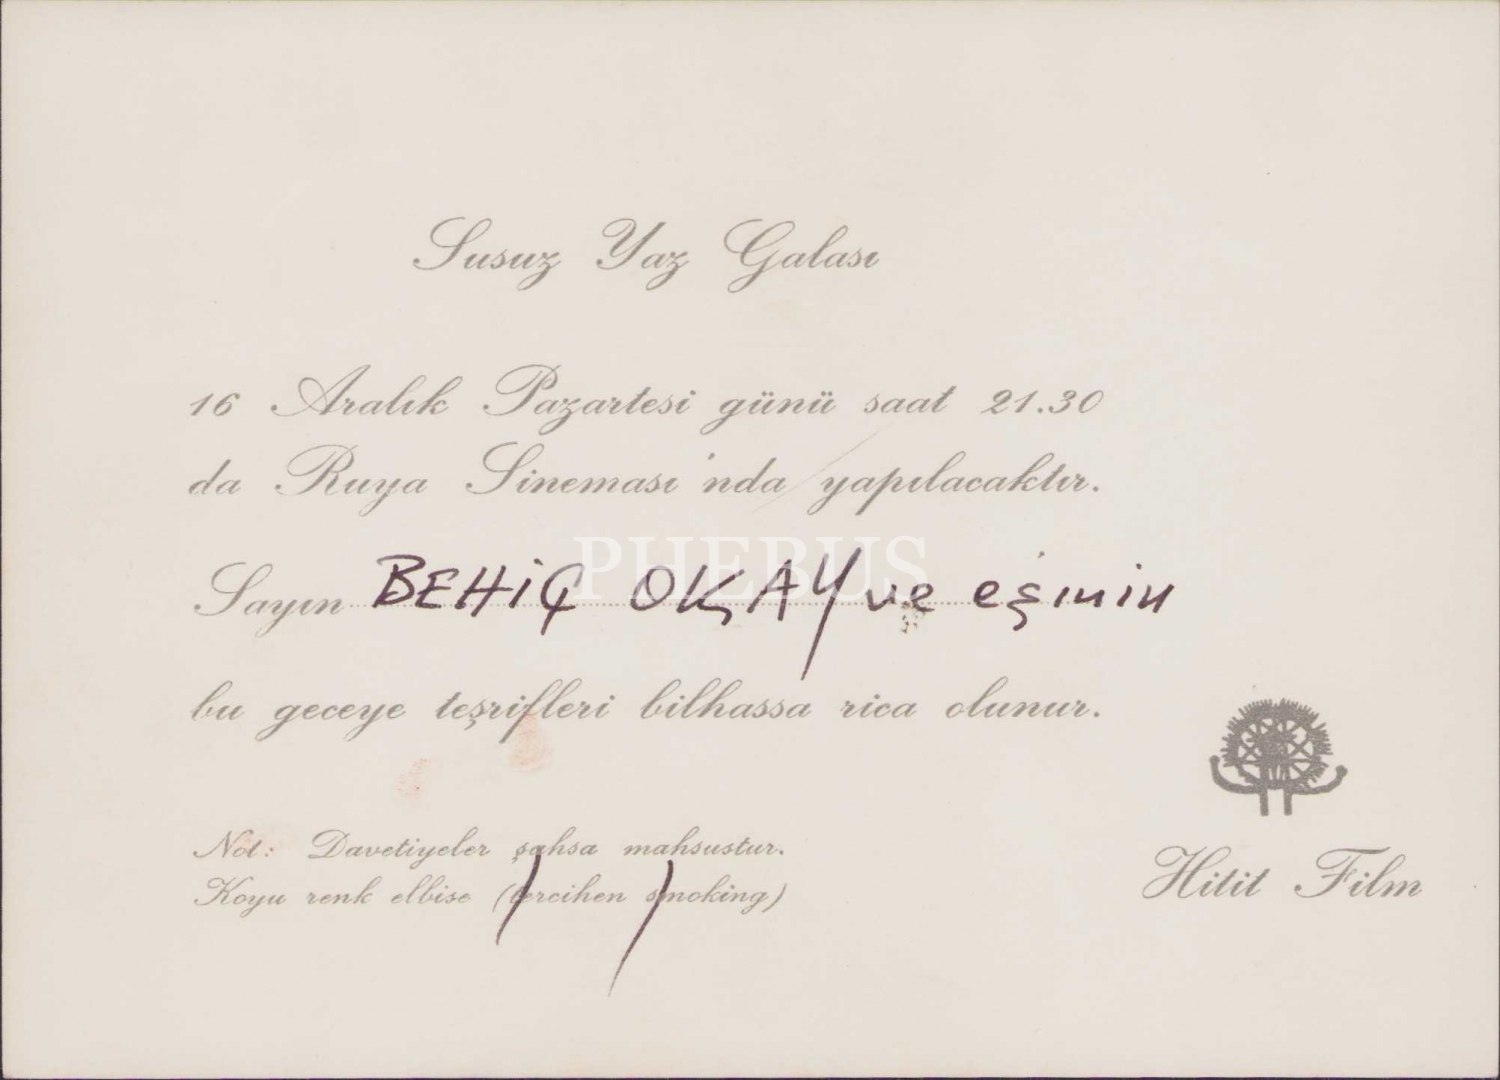 Susuz Yaz Galası
16 Aralık Pazartesi günü saat 21.30
da Ruya Sineması'nda yapılacaktır.
PHEBUS
Sayın BEHİÇ OKÇAY ve eşinin
bu geceye teşrifleri bilhassa rica olunur.
Not: Davetiyeler şahsa mahsustur.
Koyu renk elbise (tercihen smoking)
Hitit Film